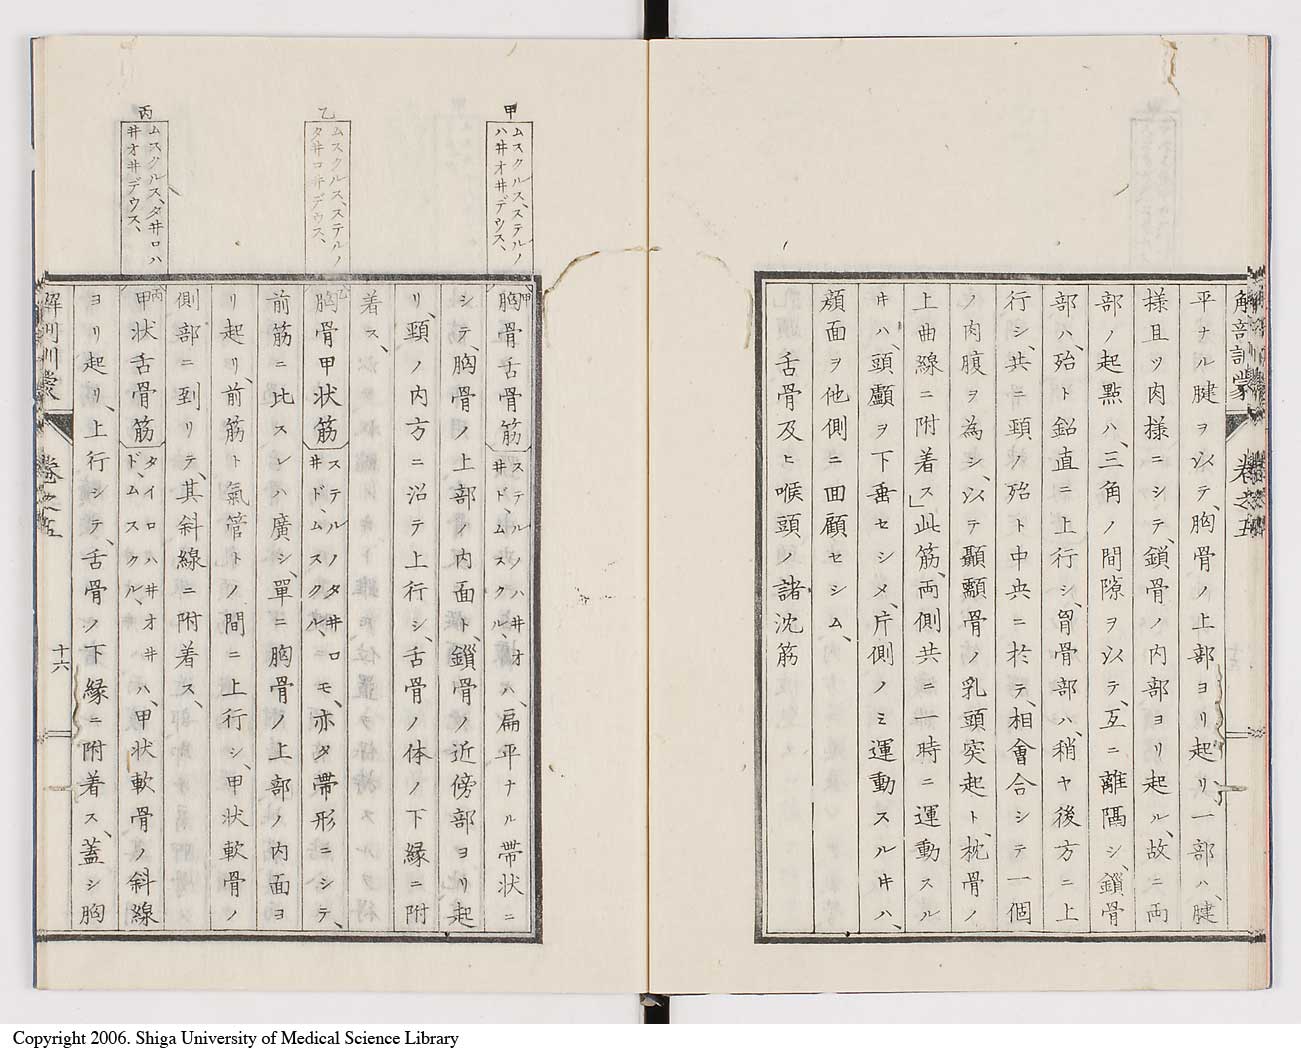 解剖訓蒙 卷之五
平ナル腱ヲ以テ、胸骨ノ上部ヨリ起リ、一部ハ、腱
樣且ツ肉樣ニシテ、鎖骨ノ内部ヨリ起ル、故ニ両
部ノ起點ハ、三角ノ間隙ヲ以テ、互ニ離隔シ、鎖骨
部ハ、殆ト鉛直ニ上行シ、胷骨部ハ、稍ヤ後方ニ上
行シ、共ニ頸ノ殆ト中央ニ於テ、相會合シテ一個
ノ肉腹ヲ為シ、以テ顳顬骨ノ乳頭突起ト、枕骨ノ
上曲線ニ附着ス」此筋、両側共ニ一時ニ運動スル
キハ、頭顱ヲ下垂セシメ、片側ノミ運動スルキハ、
顔面ヲ他側ニ回顧セシム、
舌骨及ヒ喉頭ノ諸沈筋
甲
ムスクルス、ステルノ
ハ井オ井デウス、
胸骨舌骨筋 ステルノハ井オ井ド、ムスクル、ハ、扁平ナル帶状ニ
シテ、胸骨ノ上部ノ内面ト、鎖骨ノ近傍部ヨリ起
リ、頸ノ内方ニ沿テ上行シ、舌骨ノ体ノ下縁ニ附
着ス、
乙
ムスクルス、ステルノ
タ井ロ井デウス、
胸骨甲状筋 ステルノタ井ロ井ド、ムスクル、モ、亦タ帶形ニシテ、
前筋ニ比スレハ廣シ、單ニ胸骨ノ上部ノ内面ヨ
リ起リ、前筋ト氣管トノ間ニ上行シ、甲状軟骨ノ
側部ニ到リテ、其斜線ニ附着ス、
丙
ムスクルス、タ井ロハ
井オ井デウス、
甲状舌骨筋 タイロハ井オ井ド、ムスクル、ハ、甲状軟骨ノ斜線
ヨリ起リ、上行シテ、舌骨ノ下縁ニ附着ス、蓋シ胸
解剖訓蒙 卷之五 十六
Copyright 2006. Shiga University of Medical Science Library